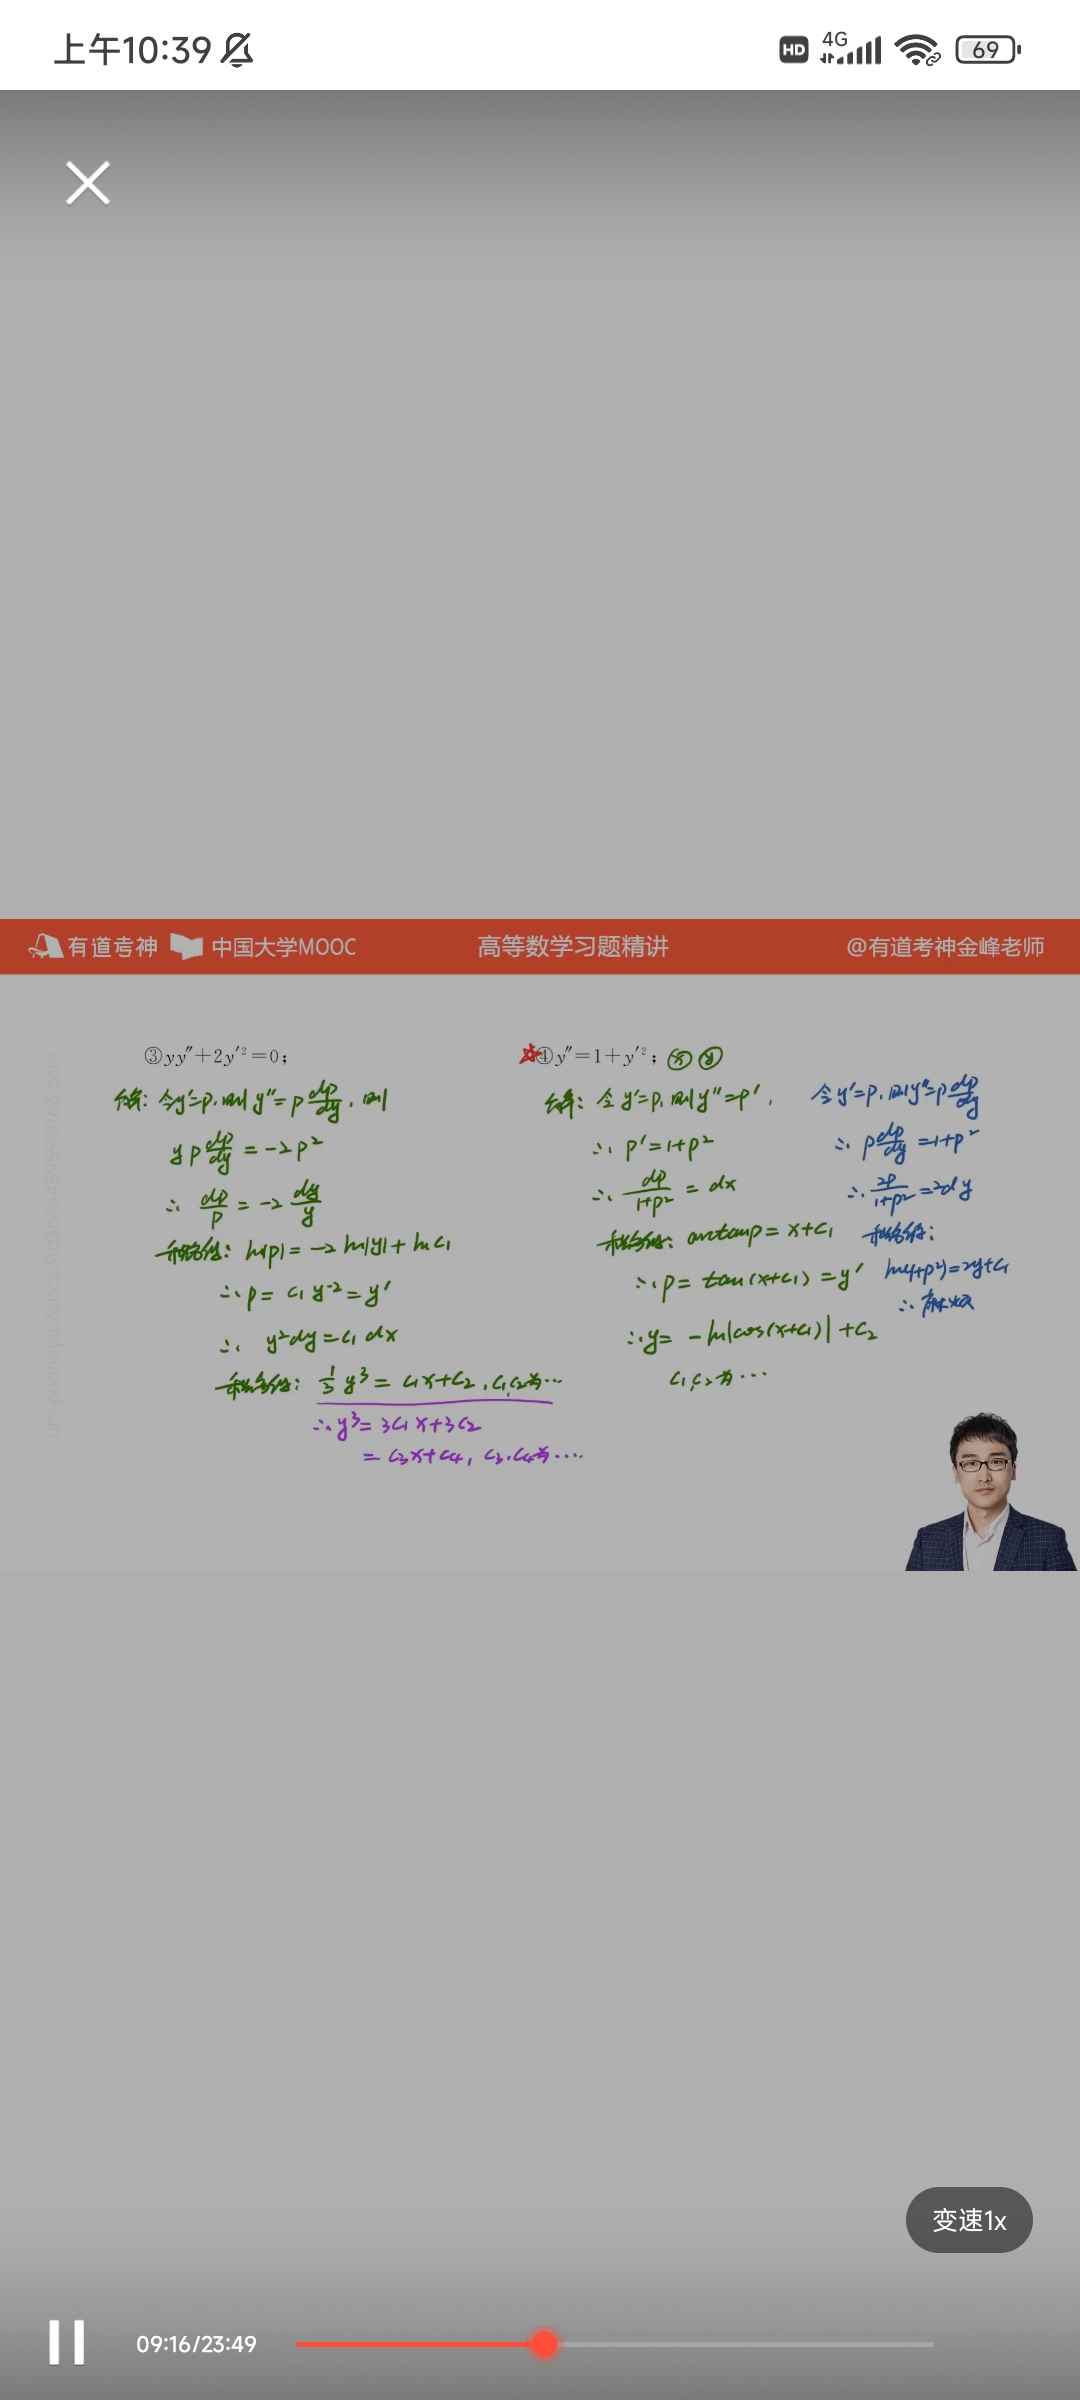 上午10:39
HD 4G 69
有道考神 中国大学MOOC 高等数学习题精讲 @有道考神金峰老师
③yy″+2y′²=0;
解: 令y′=p, 则y″=p dp/dy, 则
y p dp/dy = -2p²
∴ dp/p = -2 dy/y
积分得: ln|p| = -2 ln|y| + ln C₁
∴ p = C₁ y⁻² = y′
∴ y²dy = C₁ dx
积分得: 1/3 y³ = C₁x+C₂, C₁,C₂为…
∴ y³ = 3C₁x+3C₂
= C₃x+C₄, C₃,C₄为…
④y″=1+y′²; ⓧ ⓨ
解: 令y′=p, 则y″=p′,
∴ p′=1+p²
∴ dp/1+p² = dx
积分得: arctan p = x+C₁
∴ p = tan(x+C₁) = y′
∴ y = -ln|cos(x+C₁)|+C₂
C₁,C₂为…
令y′=p, 则y″=p dp/dy
∴ p dp/dy = 1+p²
∴ 2p/1+p² = 2dy
积分得:
ln(1+p²)=2y+C₁
∴
urs-phoneyd.2ebce31d364e45959@163.com
变速1x
09:16/23:49